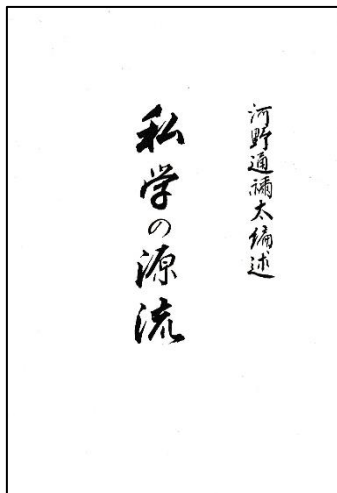 河野通禰太編述
私学の源流